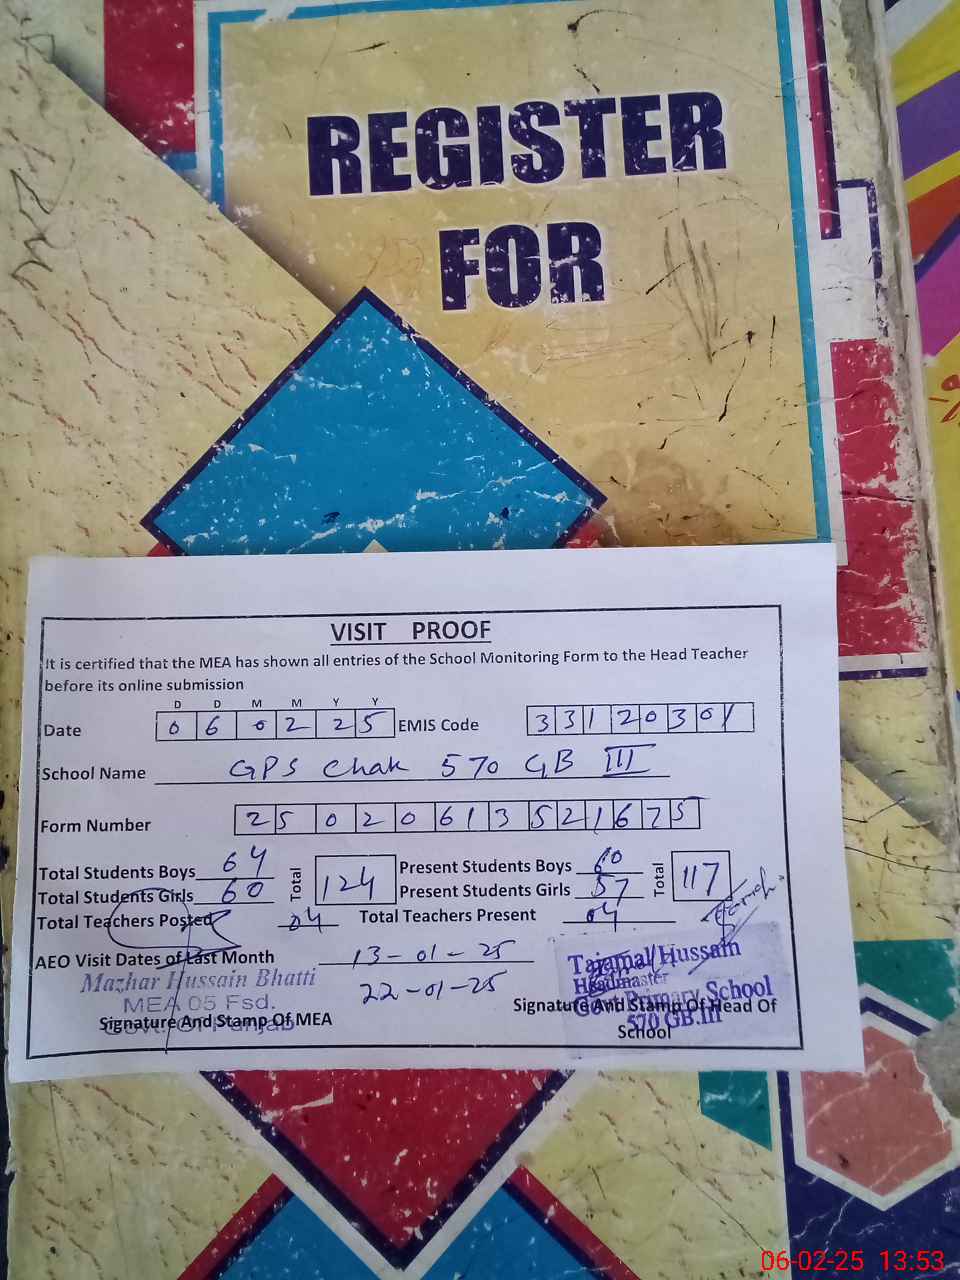 REGISTER
FOR
VISIT PROOF
It is certified that the MEA has shown all entries of the School Monitoring Form to the Head Teacher
before its online submission
D D M M Y Y
Date 0 6 0 2 2 5 EMIS Code 3 3 1 2 0 3 0 1
School Name GPS Chak 570 GB III
Form Number 2 5 0 2 0 6 1 3 5 2 1 6 7 5
Total Students Boys 64 Total 124 Present Students Boys 60 Total 117
Total Students Girls 60 Present Students Girls 57
Total Teachers Posted 04 Total Teachers Present 04
AEO Visit Dates of Last Month 13-01-25
22-01-25
Mazhar Hussain Bhatti
MEA 05 Fsd.
Govt. Of Punjab
Signature And Stamp Of MEA
Tajamal Hussain
Headmaster
Govt Primary School
570 GB.III
Signature And Stamp Of Head Of
School
06-02-25 13:53